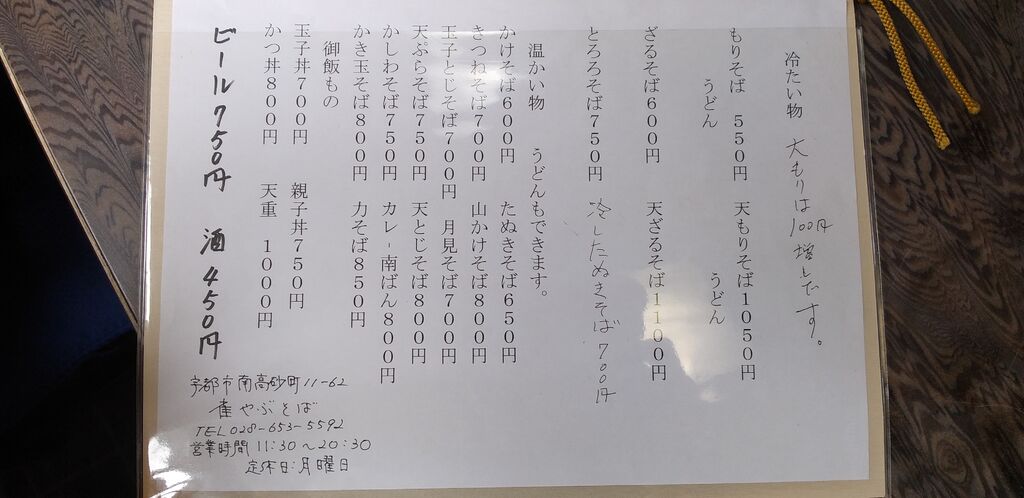 冷たい物 大もりは100円増しです。
もりそば 550円 天もりそば1050円
うどん うどん
ざるそば600円 天ざるそば1100円
とろろそば750円 冷したぬきそば700円
温かい物 うどんもできます。
かけそば600円 たぬきそば650円
きつねそば700円 山かけそば800円
玉子とじそば700円 月見そば700円
天ぷらそば750円 天とじそば800円
かしわそば750円 カレー南ばん800円
かき玉そば800円 力そば850円
御飯もの
玉子丼700円 親子丼750円
かつ丼800円 天重 1000円
ビール750円 酒450円
宇都市南高砂町11-62
雀やぶそば
TEL028-653-5592
営業時間11:30～20:30
定休日:月曜日